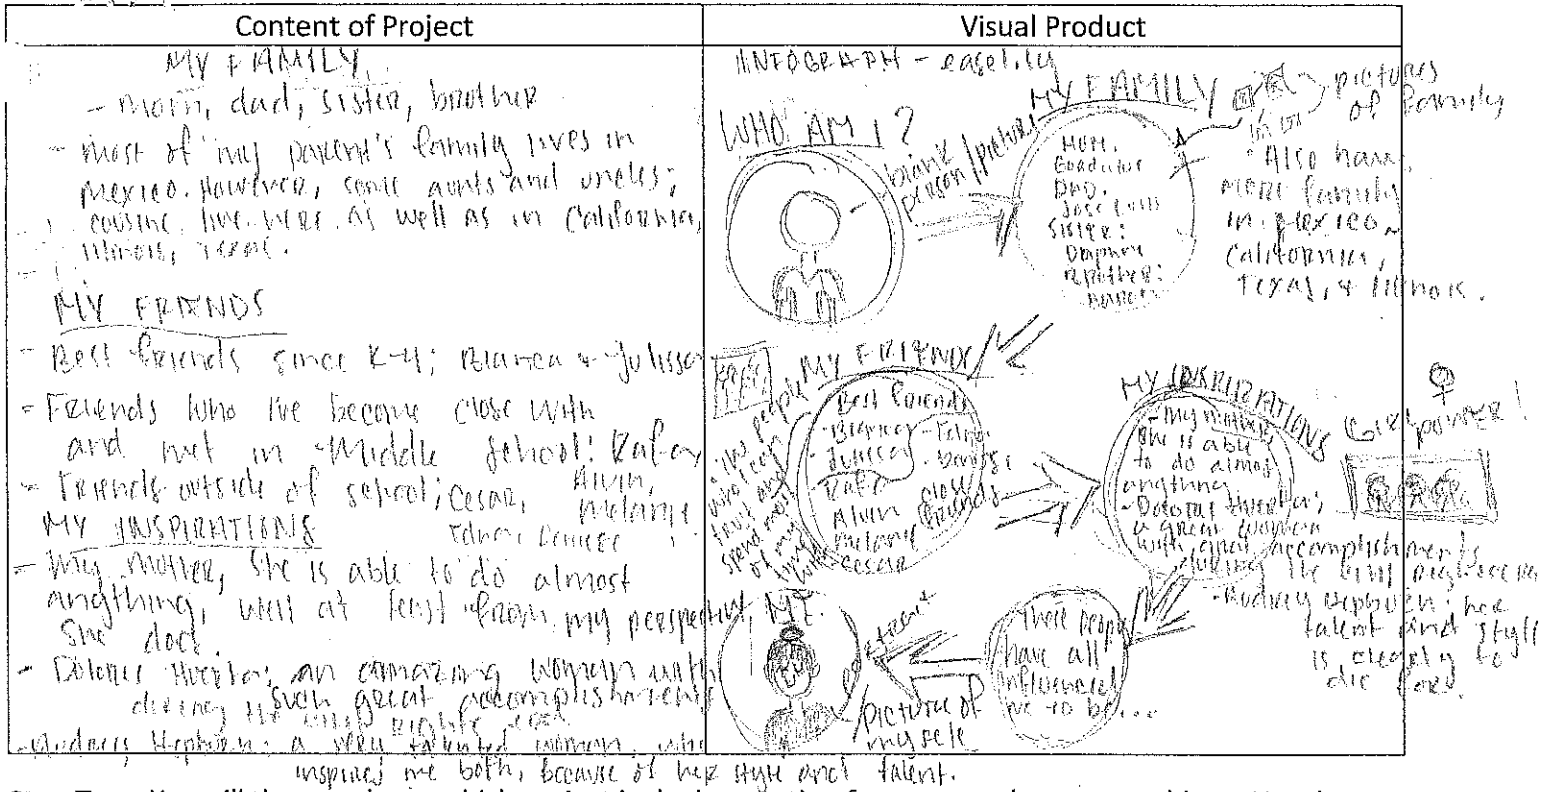 Content of Project
MY FAMILY
- mom, dad, sister, brother
- most of my parent's family lives in
mexico. However, some aunts and uncles,
cousins live here as well as in California,
Illinois, Texas.
MY FRIENDS
- Best friends since K-4; Bianca + Julissa
- Friends who I've become close with
and met in Middle School: Rafa,
Alvin,
Melanie
- Friends outside of school; Cesar,
MY INSPIRATIONS
- My mother, she is able to do almost
anything, well at least from my perspective,
she does.
- Dolores Huerta; an amazing woman with
such great accomplishments
during the civil Rights era
Hepburn: a very talented woman, who
inspires me both, because of her style and talent.
Visual Product
INFOGRAPH - easel.ly
WHO AM I?
blank
person/picture
MY FAMILY
pictures
of family
MOM.
DAD.
Jose Luis
SISTER:
Daphne
BROTHER:
Also have
more family
in Mexico,
California,
Texas, + Illinois.
MY FRIENDS
people
who I can
trust and
spend most
of my
time with
Best friends
- Bianca
- Julissa
Rafa
Alvin
Melanie
Cesar
close
friends
MY INSPIRATIONS
- My mother,
she is able
to do almost
anything
- Dolores Huerta;
a great woman
with great accomplishments
during the civil rights era
- Audrey Hepburn: her
talent and style
is clearly to
die for.
GIRL POWER!
These people
have all
influenced
me to be...
ME.
picture of
myself